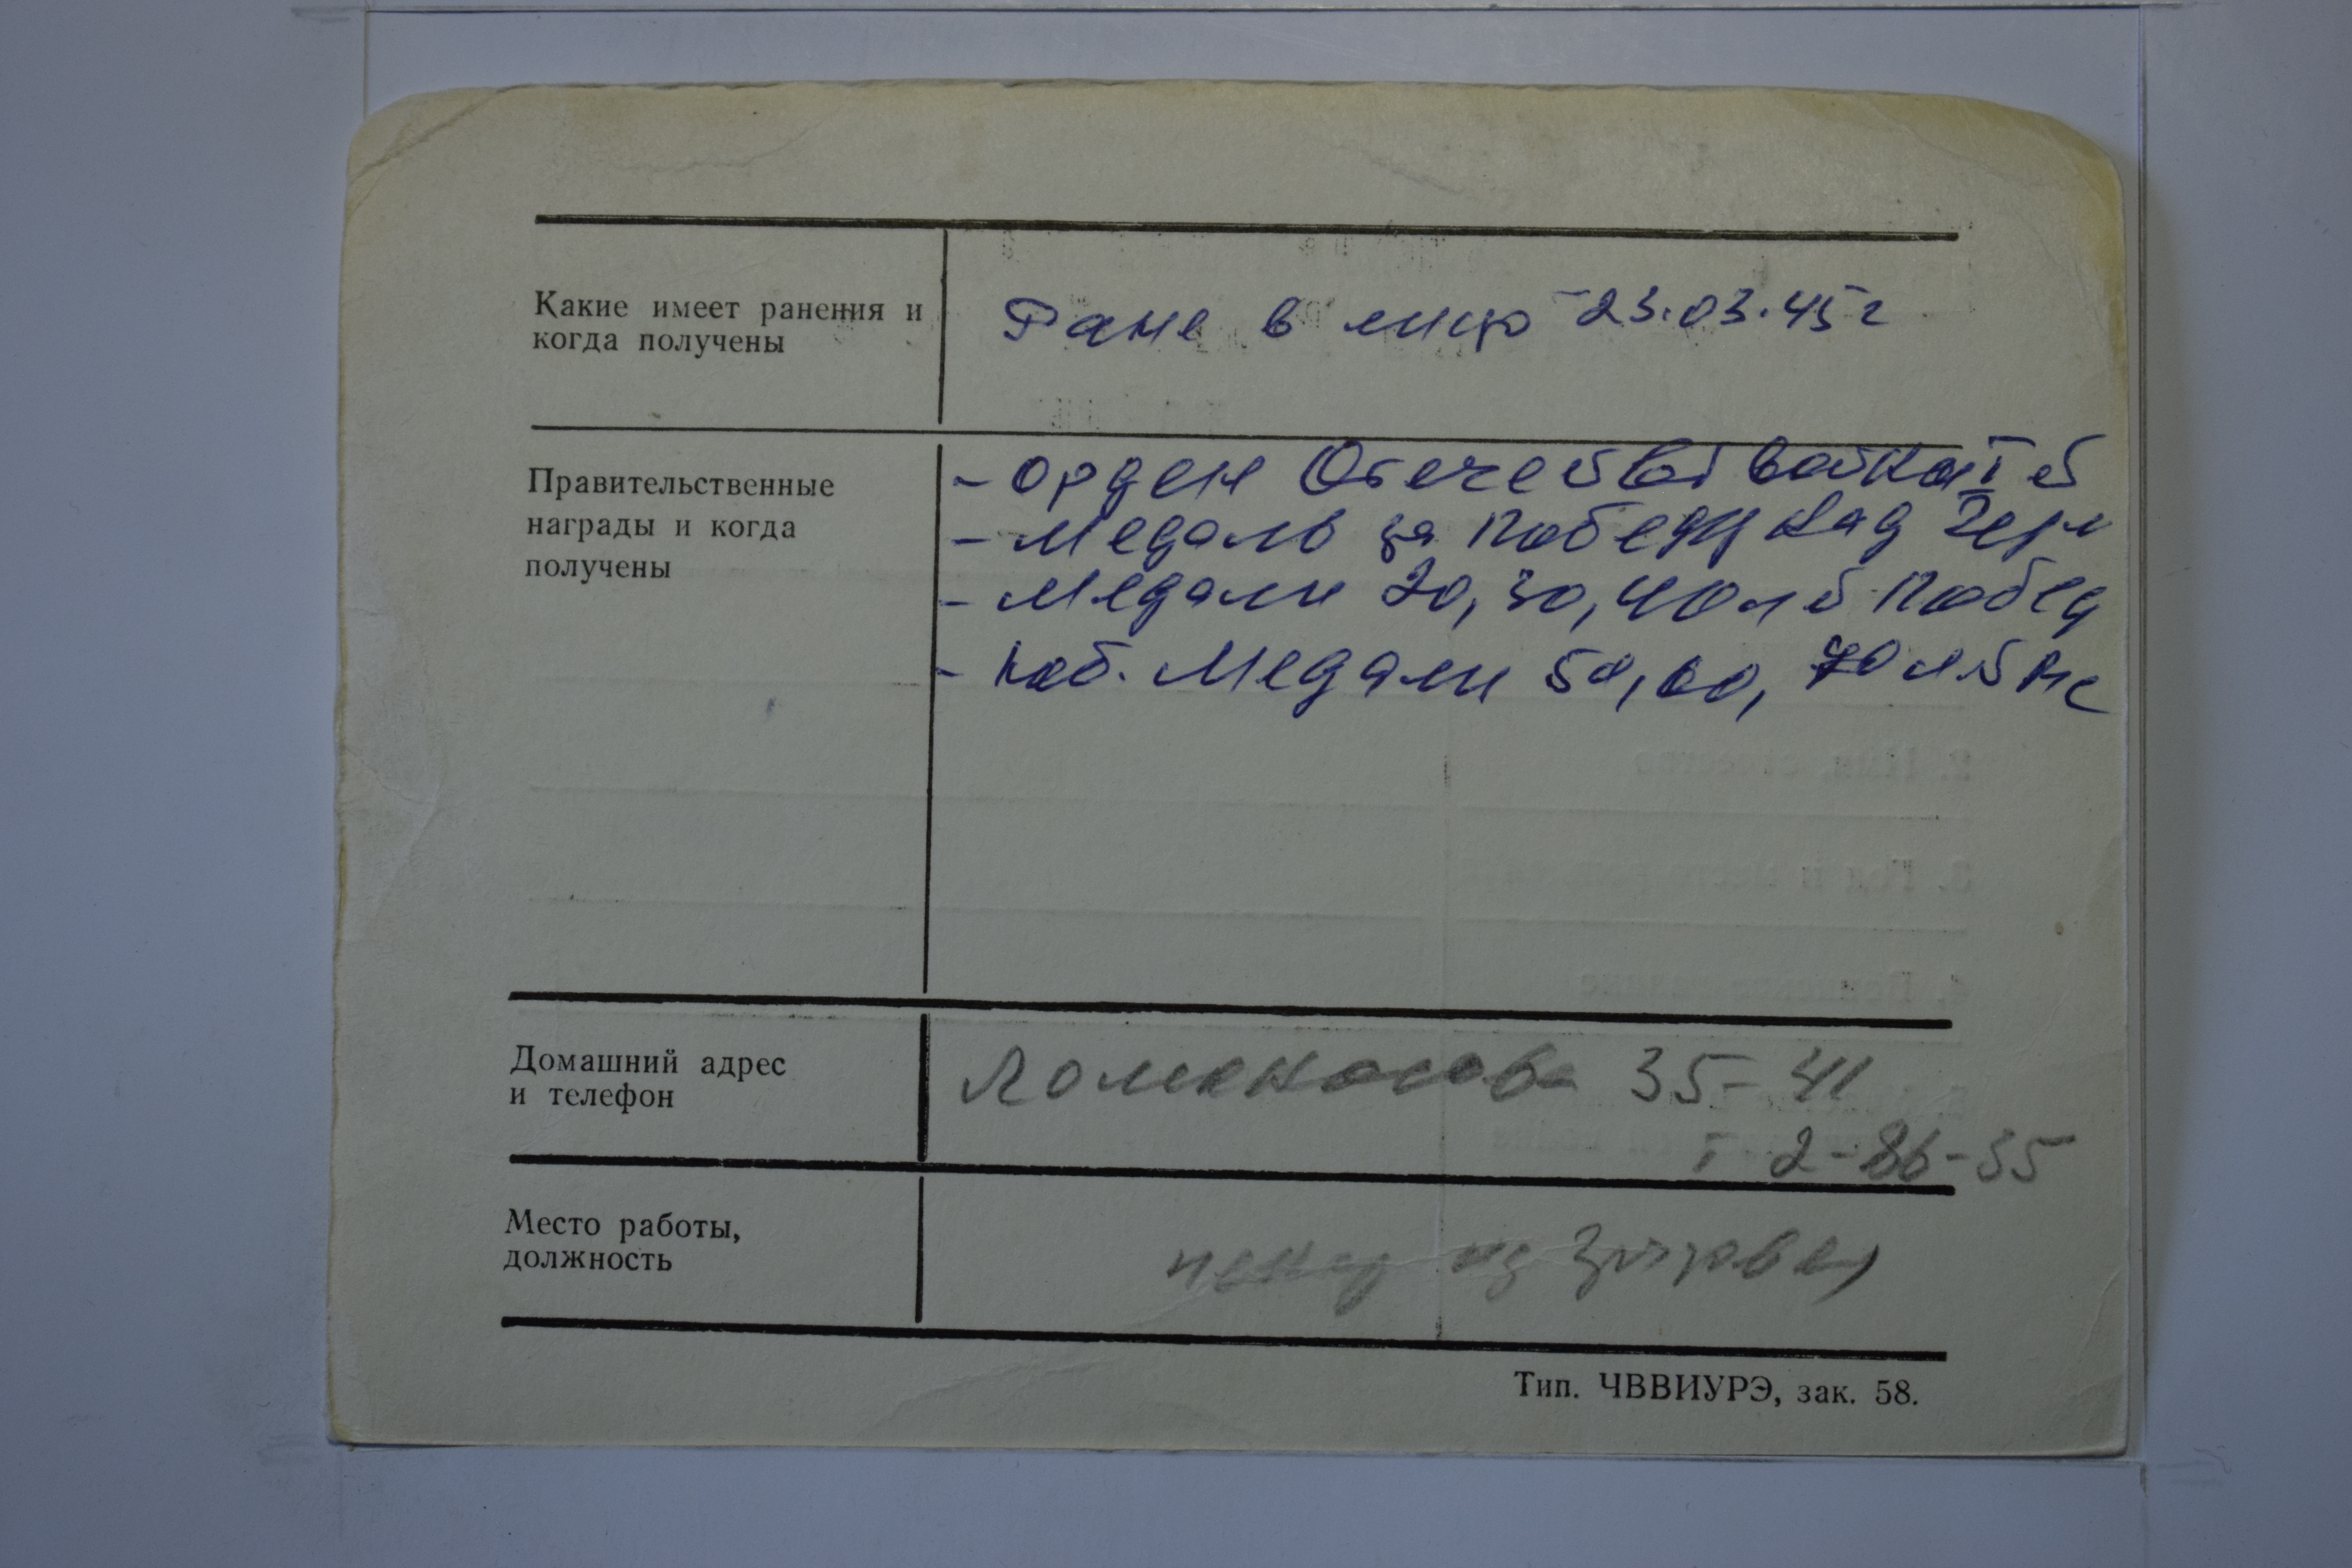 Какие имеет ранения и
когда получены
Ране в лицо - 23.03.45 г
Правительственные
награды и когда
получены
- Орден Отечеств войны I с
- Медаль за Победу над Герм
- Медали 20, 30, 40 л б Побед
- Юб. Медали 50, 60, 70 л б
Домашний адрес
и телефон
Ломоносова 35-41
т 2-86-55
Место работы,
должность
Тип. ЧВВИУРЭ, зак. 58.